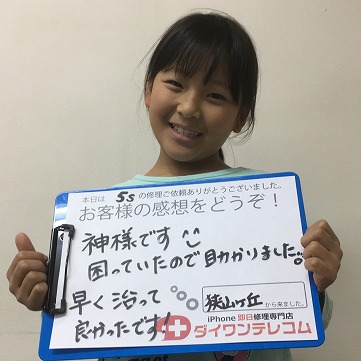 本日は 5s の修理ご依頼ありがとうございました。
お客様の感想をどうぞ！
神様です
困っていたので助かりました。
早く治って
良かったです！
狭山ヶ丘 から来ました。
iPhone 即日修理専門店
ダイワンテレコム